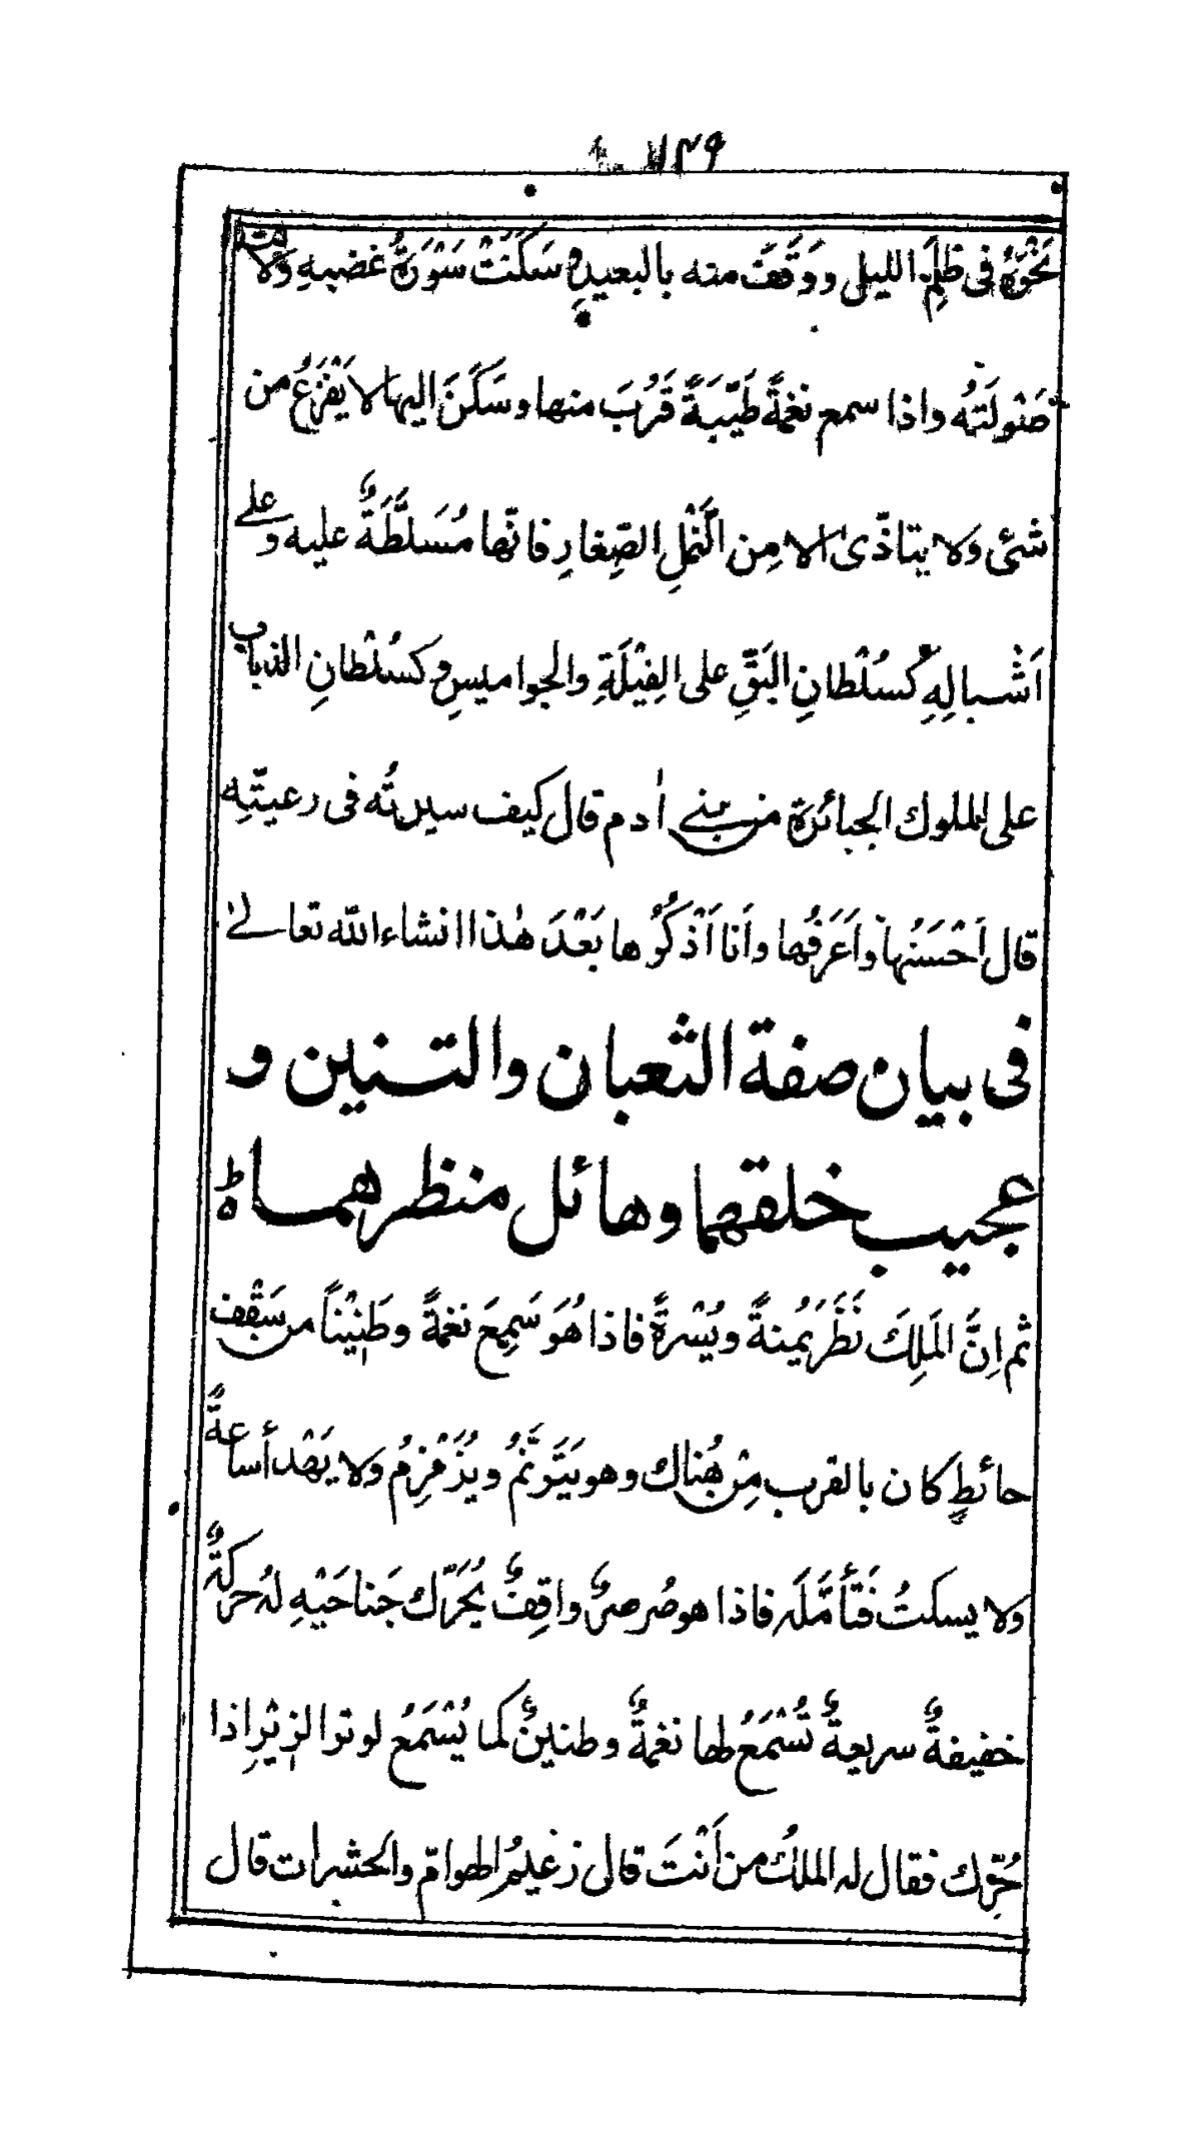 نَحْوَهُ فى ظُلَمِ الليل ووَقَفَتْ منه بالبعيدِ سَكَنَتْ سَوْرَةُ غضبهِ ولانت
صَوْلَتُه واذا سمع نغمةً طَيِّبَةً قَرُبَ منها وسَكَنَ اليها لا يَفْزَعُ من
شئى ولا يتاذّى الا مِن النَّمْلِ الصِّغارِ فانّها مُسَلَّطَةٌ عليه وعلے
اَشْبالِهِ كسُلْطانِ البَقِّ على الفِيْلَةِ والجواميسِ وكسُلْطانِ الذباب
على الملوك الجبائرة من بنے اٰدم قال كيف سيرتُه فى رعيتّه
قال اَحْسَنُها واَعَرَفُها واَنا اَذْكُرُها بَعْدَ هٰذا انشاء الله تعالے
فى بيان صفة الثعبان والتنين و
عجيب خلقهما وهائل منظرهما ۃ
ثم اِنَّ المَلِكَ نَظَرَ يُمنةً ويُسْرةً فاذا هُوَ سَمِعَ نغمةً وطَنِيْنًا من سَقْف
حائطٍ كان بالقرب مِنْ هُناك وهو يَتَرَنَّمُ ويُزَمْزِمُ ولا يَهْدأ ساعةً
ولا يسكتُ فَتَأَمَّلَه فاذا هو صُرصرٌ واقِفٌ يُحَرِّك جَناحَيْهِ لهُ حركةٌ
خفيفةٌ سريعةٌ تُسْمَعُ لها نغمةٌ وطنينٌ كما يُسْمَعُ لوترا لزيْرِ اذا
حُرِّك فقال له الملكُ من اَنْتَ قال زعيمُ الهوامّ والحشرات قال